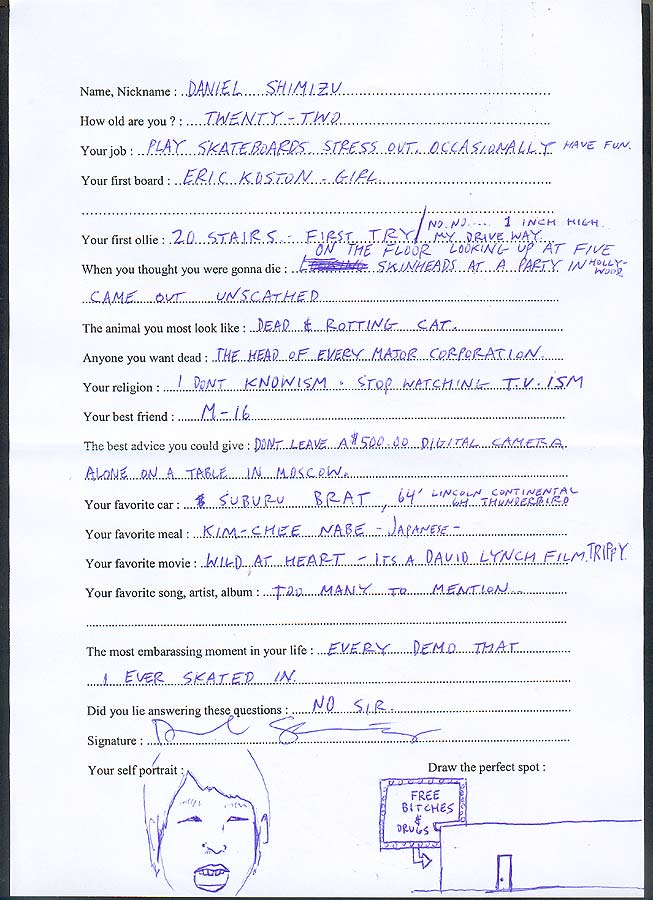 Name, Nickname : DANIEL SHIMIZU
How old are you ? : TWENTY-TWO
Your job : PLAY SKATEBOARDS. STRESS OUT. OCCASIONALLY HAVE FUN.
Your first board : ERIC KOSTON - GIRL
NO. NO.... 1 INCH HIGH
Your first ollie : 20 STAIRS - FIRST TRY / MY DRIVE WAY
ON THE FLOOR LOOKING UP AT FIVE
When you thought you were gonna die : SKINHEADS AT A PARTY IN HOLLY-WOOD
CAME OUT UNSCATHED
The animal you most look like : DEAD & ROTTING CAT.
Anyone you want dead : THE HEAD OF EVERY MAJOR CORPORATION
Your religion : I DONT KNOWISM. STOP WATCHING T.V. ISM
Your best friend : M-16
The best advice you could give : DONT LEAVE A $500.00 DIGITAL CAMERA
ALONE ON A TABLE IN MOSCOW.
Your favorite car : SUBURU BRAT, 64' LINCOLN CONTINENTAL
THUNDERBIRD
Your favorite meal : KIM-CHEE NABE - JAPANESE -
Your favorite movie : WILD AT HEART - ITS A DAVID LYNCH FILM. TRIPPY
Your favorite song, artist, album : TOO MANY TO MENTION...
The most embarassing moment in your life : EVERY DEMO THAT
I EVER SKATED IN.
Did you lie answering these questions : NO SIR.
Signature :
Your self portrait :
Draw the perfect spot :
FREE
BITCHES
&
DRUGS